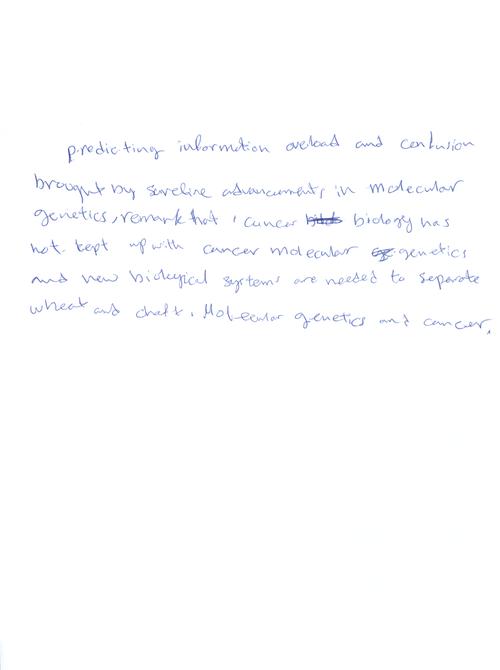 predicting information overload and confusion
brought by sareline advancements in molecular
genetics, remark that 'cancer biology has
not kept up with cancer molecular genetics
and new biological systems are needed to separate
wheat and chaff. Molecular genetics and cancer.